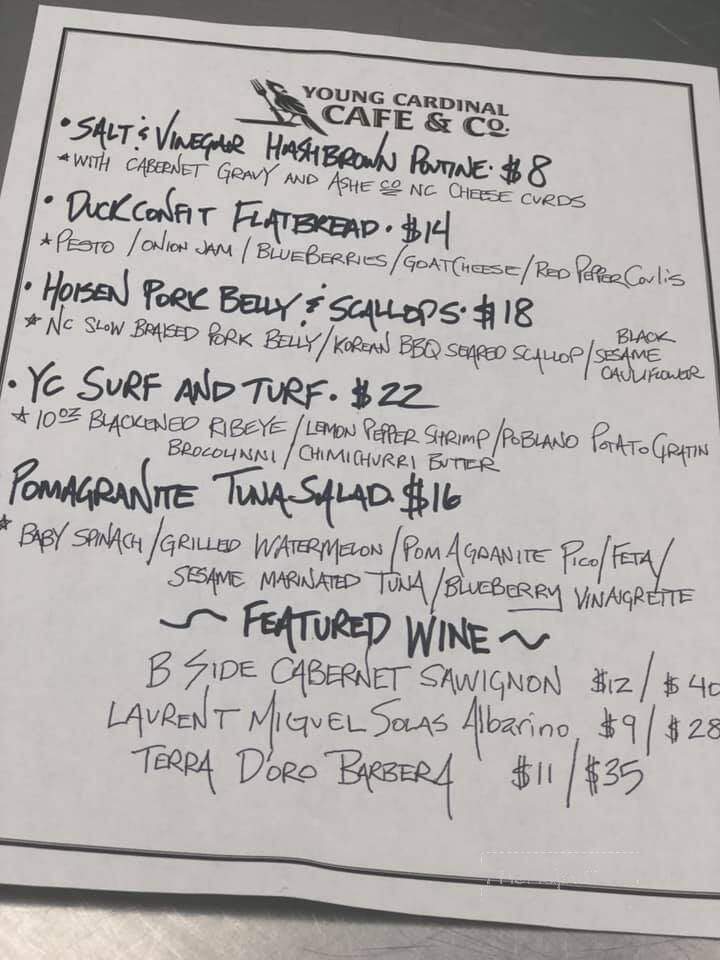 YOUNG CARDINAL
CAFE & CO.
• SALT & VINEGAR HASHBROWN POUTINE • $8
* WITH CABERNET GRAVY AND ASHE CO NC CHEESE CURDS
• DUCK CONFIT FLATBREAD • $14
* PESTO / ONION JAM / BLUEBERRIES / GOAT CHEESE / RED PEPPER COULIS
• HOISEN PORK BELLY & SCALLOPS • $18
* NC SLOW BRAISED PORK BELLY / KOREAN BBQ SEARED SCALLOP / BLACK
SESAME
CAULIFLOWER
• YC SURF AND TURF • $22
* 10 OZ BLACKENED RIBEYE / LEMON PEPPER SHRIMP / POBLANO POTATO GRATIN
BROCOLINNI / CHIMICHURRI BUTTER
POMAGRANITE TUNA SALAD • $16
* BABY SPINACH / GRILLED WATERMELON / POMAGRANITE PICO / FETA /
SESAME MARINATED TUNA / BLUEBERRY VINAIGRETTE
~ FEATURED WINE ~
B SIDE CABERNET SAWIGNON $12 / $40
LAURENT MIGUEL SOLAS Albarino $9 / $28
TERRA D'ORO BARBERA $11 / $35